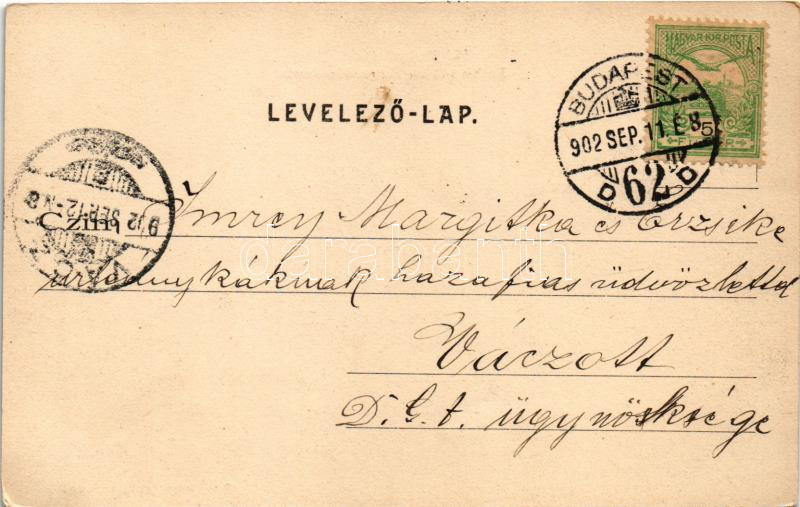 MAGYAR KIR. POSTA
5
BUDAPEST
902 SEP. 11. E 8
62
D D
LEVELEZŐ-LAP.
902 SEP. 12 - N 8
Czím
Imrey Margitka és Erzsike
úrleánykáknak hazafias üdvözlettel
Váczott
D. G. t. ügynöksége
darabanth